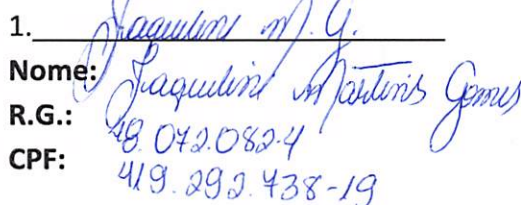 1. Jaqueline M. G.
Nome: Jaqueline Martins Gomes
R.G.: 48.072.082-4
CPF: 419.292.738-19